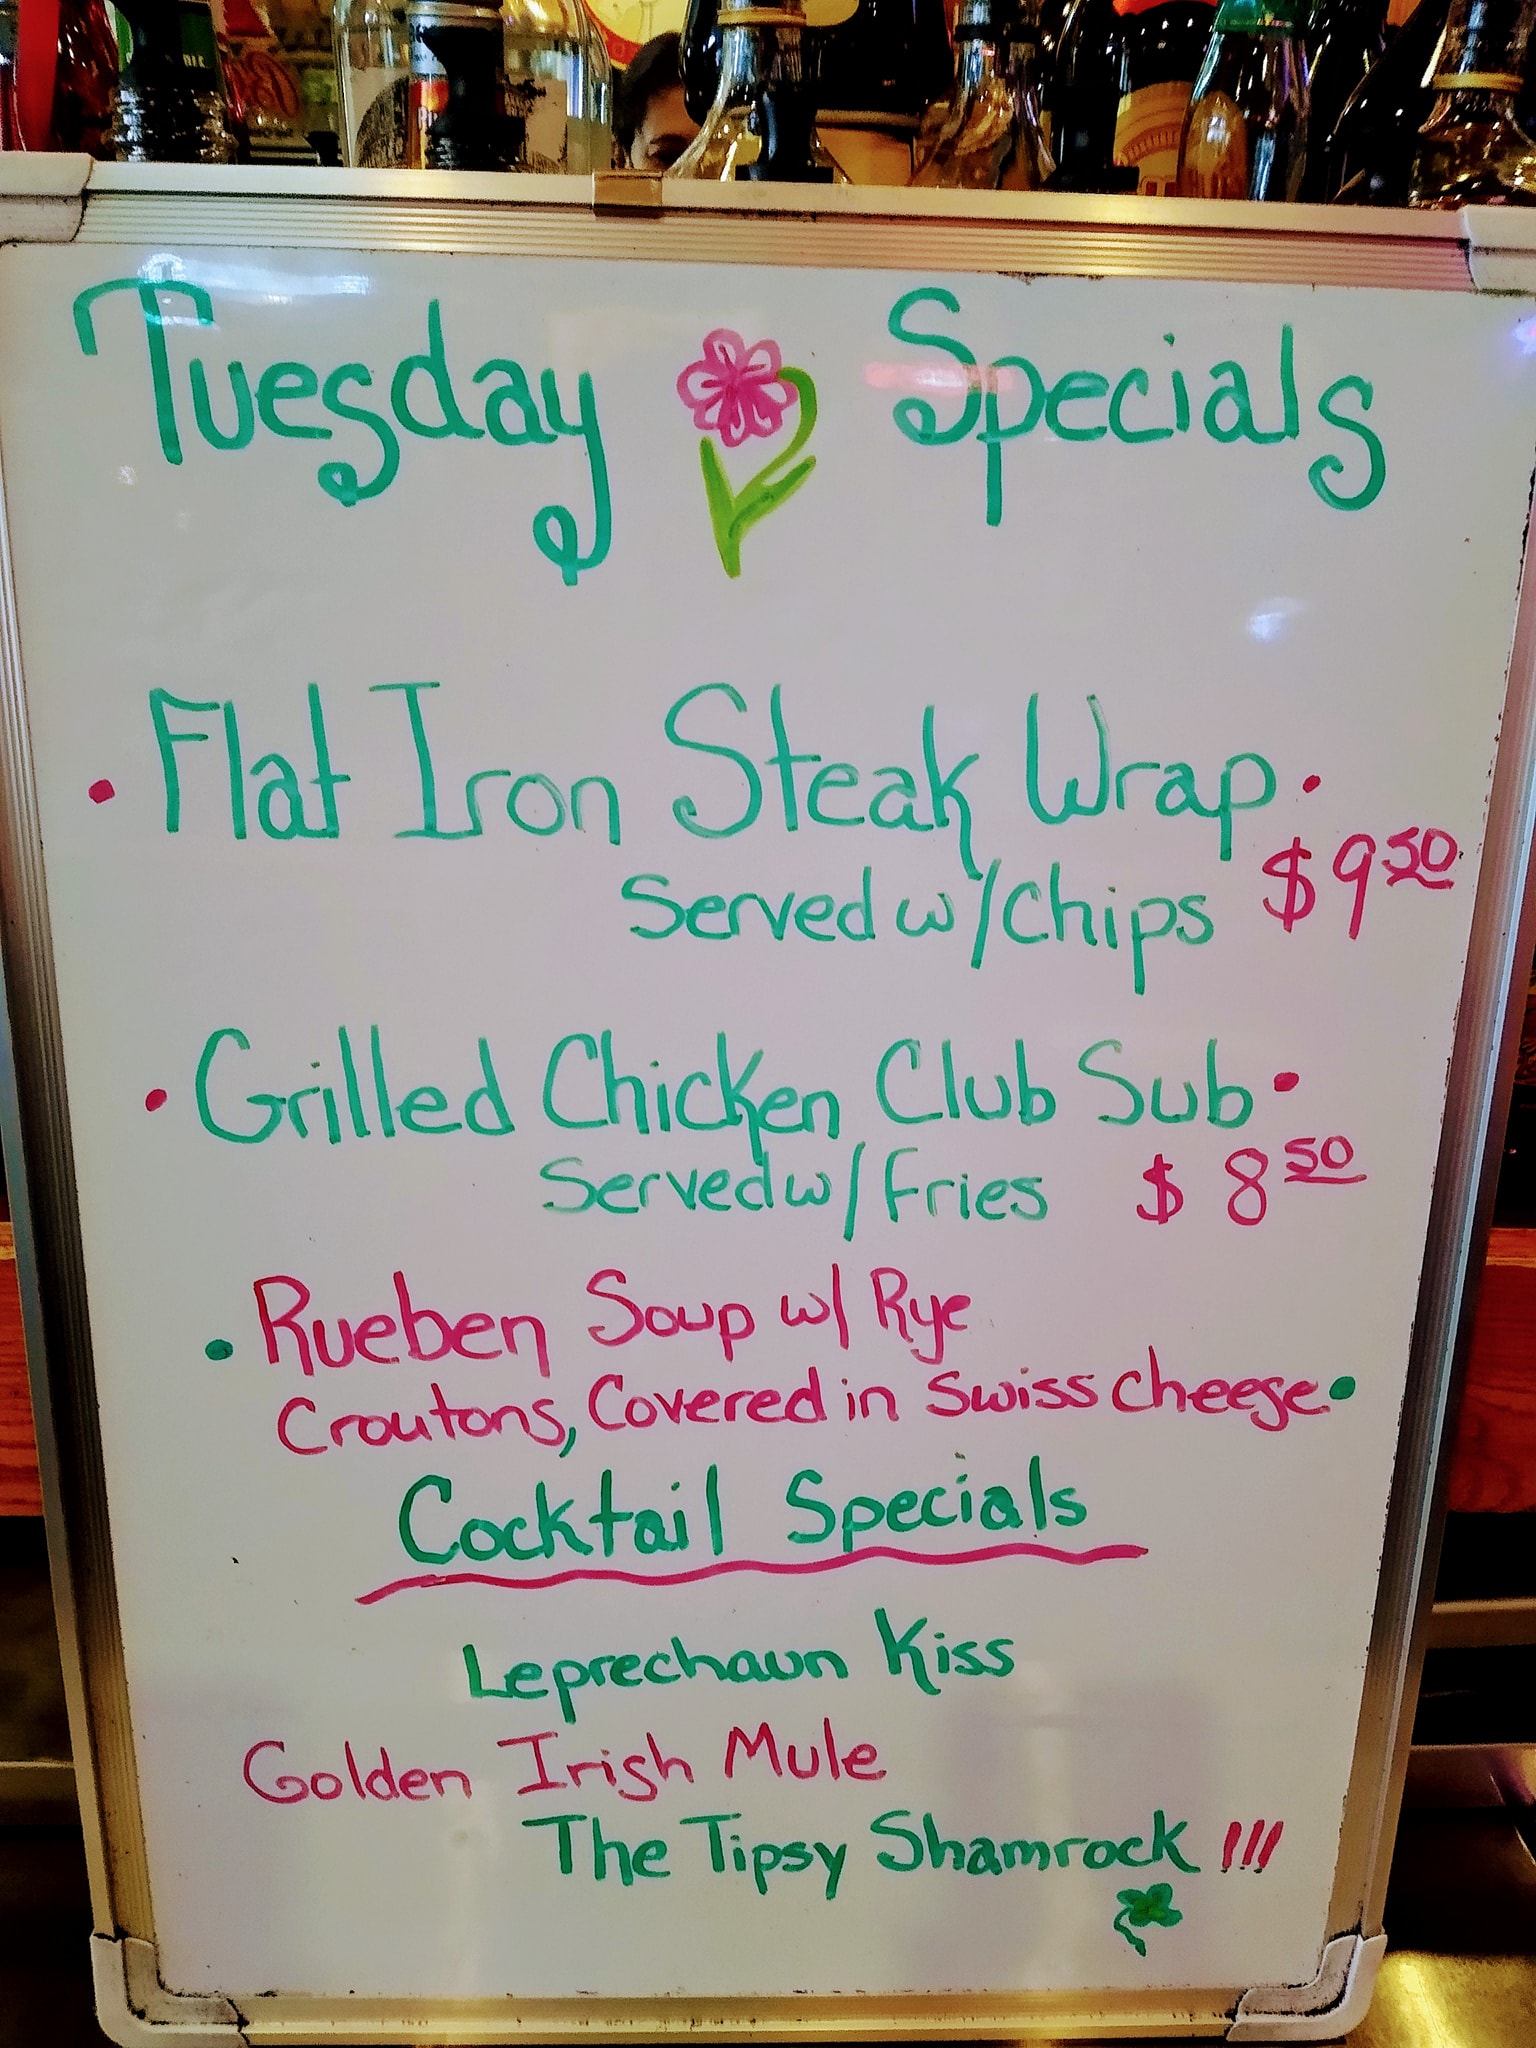 Tuesday Specials
• Flat Iron Steak Wrap •
Served w/Chips $9 50
• Grilled Chicken Club Sub •
Served w/Fries $8 50
• Rueben Soup w/ Rye
Croutons, Covered in Swiss Cheese •
Cocktail Specials
Leprechaun Kiss
Golden Irish Mule
The Tipsy Shamrock !!!